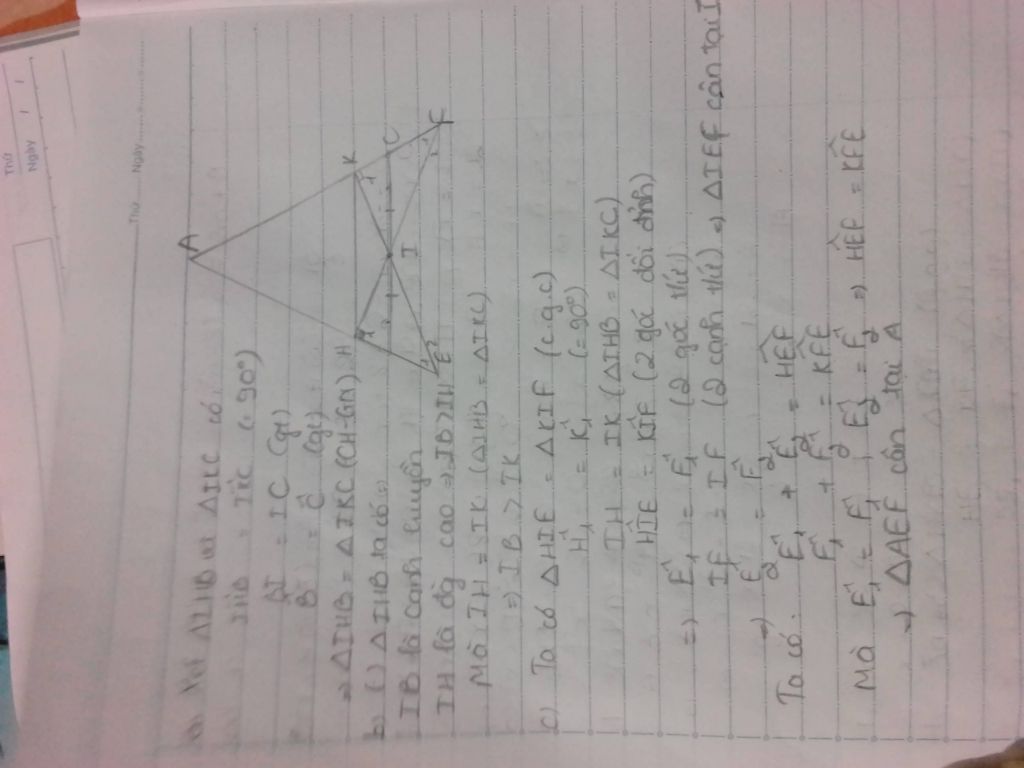 Thứ
Ngày / /
Thứ Ngày
a) Xét ΔIHB và ΔIKC có
IĤB = IK̂C (= 90°)
BI = IC (gt)
B̂ = Ĉ (gt)
=> ΔIHB = ΔIKC (CH-GN)
b) ( ) ΔIHB ta có:
IB là cạnh huyền
IH là đg cao => IB > IH
Mà IH = IK (ΔIHB = ΔIKC)
=> IB > IK
c) Ta có ΔHIE = ΔKIF (c.g.c)
Ĥ₁ = K̂₁ (= 90°)
IH = IK (ΔIHB = ΔIKC)
HÎE = KÎF (2 gó đối đỉnh)
=> Ê₁ = F̂₁ (2 góc t/ứ)
IE = IF (2 cạnh t/ứ) => ΔIEF cân tại I
=> Ê₂ = F̂₂
Ta có: Ê₁ + Ê₂ = HÊF
F̂₁ + F̂₂ = KF̂E
Mà Ê₁ = F̂₁, Ê₂ = F̂₂ => HÊF = KF̂E
=> ΔAEF cân tại A
A
H
K
C
I
E
F